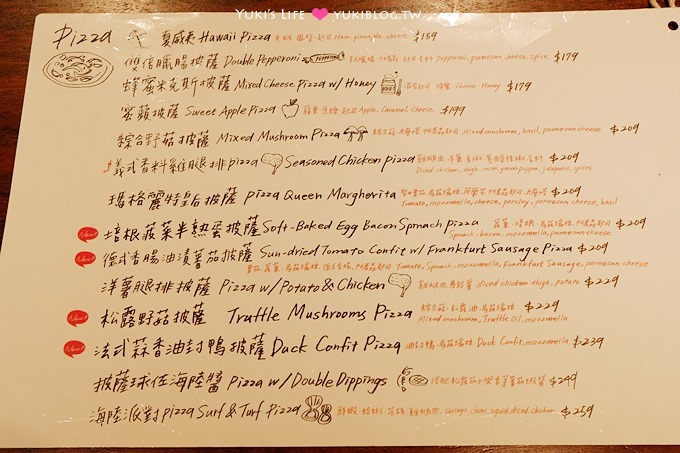 YUKI'S LIFE ♥ YUKIBLOG.TW
Pizza
夏威夷 Hawaii Pizza Ham, pineapple, cheese $159
雙倍臘腸披薩 Double Pepperoni Pepperoni, parmesan cheese, spice $179
蜂蜜米克斯披薩 Mixed Cheese Pizza w/ Honey Cheese, Honey $179
蜜蘋披薩 Sweet Apple Pizza Apple, Caramel, Cheese $199
綜合野菇披薩 Mixed Mushroom Pizza Mixed mushroom, basil, parmesan cheese $209
義式香料雞腿排pizza Seasoned Chicken pizza $209
Diced chicken, onion, green pepper, jalapeno, spices
瑪格麗特皇后披薩 pizza Queen Margherita $209
Tomato, mozzarella, cheese, parsley, parmesan cheese, basil
New! 培根菠菜半熟蛋披薩 Soft-Baked Egg Bacon Spinach pizza 菠菜、培根、 $209
Spinach, bacon, mozzarella, parmesan cheese
New! 德式香腸油漬蕃茄披薩 Sun-dried Tomato Confit w/ Frankfurt Sausage Pizza $209
Tomato, Spinach, mozzarella, Frankfurt Sausage, parmesan cheese
洋薯腿排披薩 Pizza w/ Potato & Chicken diced chicken thigh, potato $229
New! 松露野菇披薩 Truffle Mushrooms Pizza $229
Mixed mushroom, Truffle Oil, mozzarella
New! 法式蒜香油封鴨披薩 Duck Confit Pizza Duck Confit, mozzarella $239
披薩球佐海陸醬 Pizza w/ Double Dippings $249
海陸派對pizza Surf & Turf Pizza shrimps, clams, squid, diced chicken $259